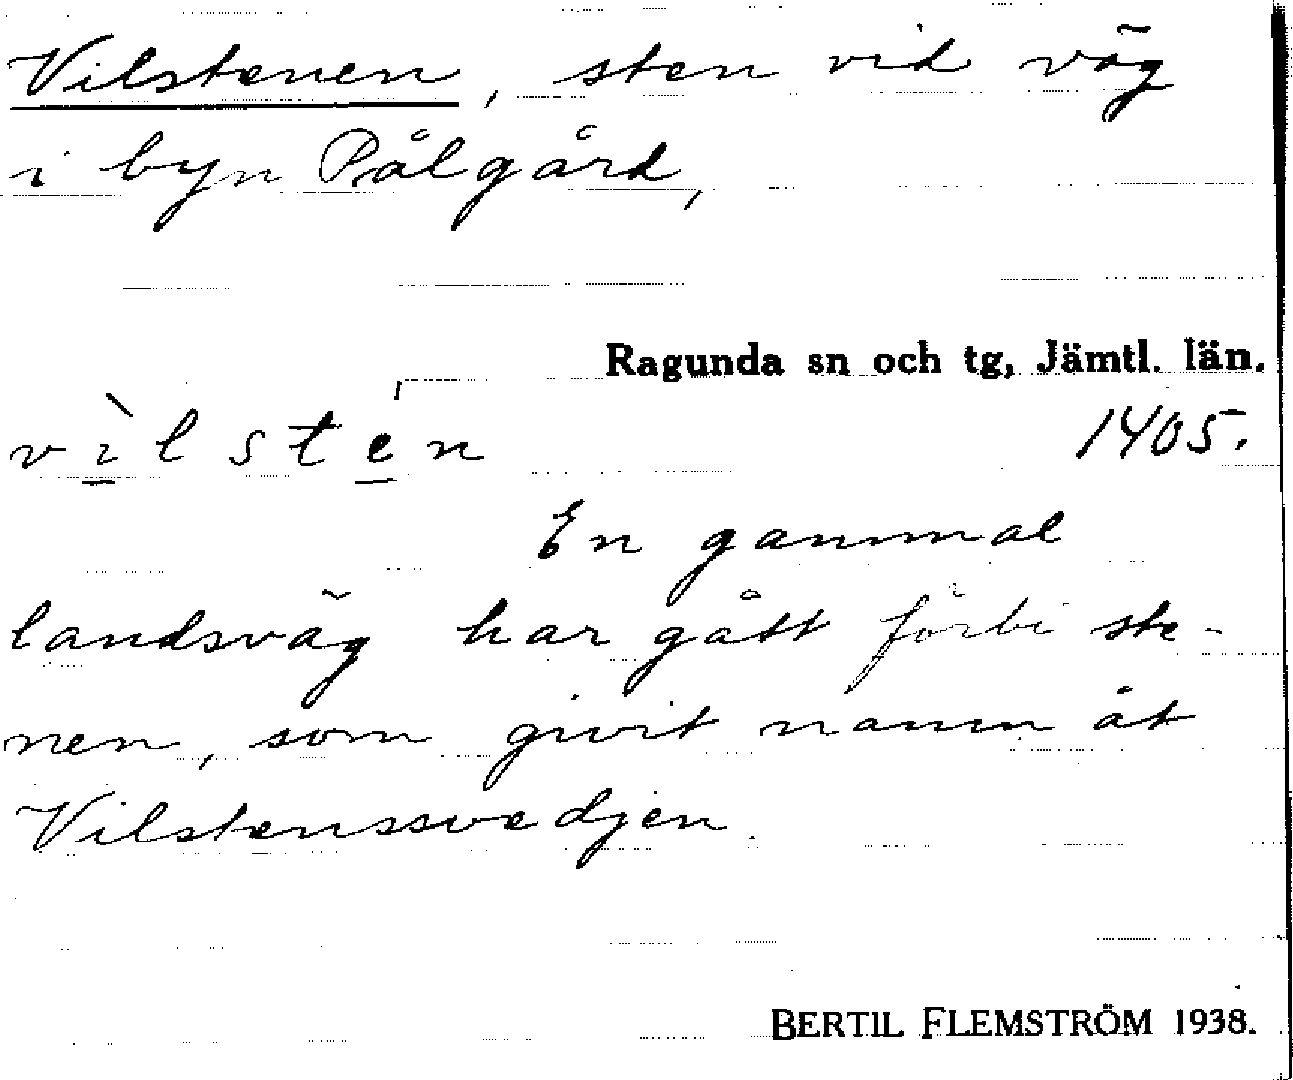 Vilstenen, sten vid väg
i byn Pålgård,
Ragunda sn och tg, Jämtl. län.
vìlsten
1405.
En gammal
landsväg har gått förbi ste-
nen, som givit namn åt
Vilstenssvedjen.
BERTIL FLEMSTRÖM 1938.